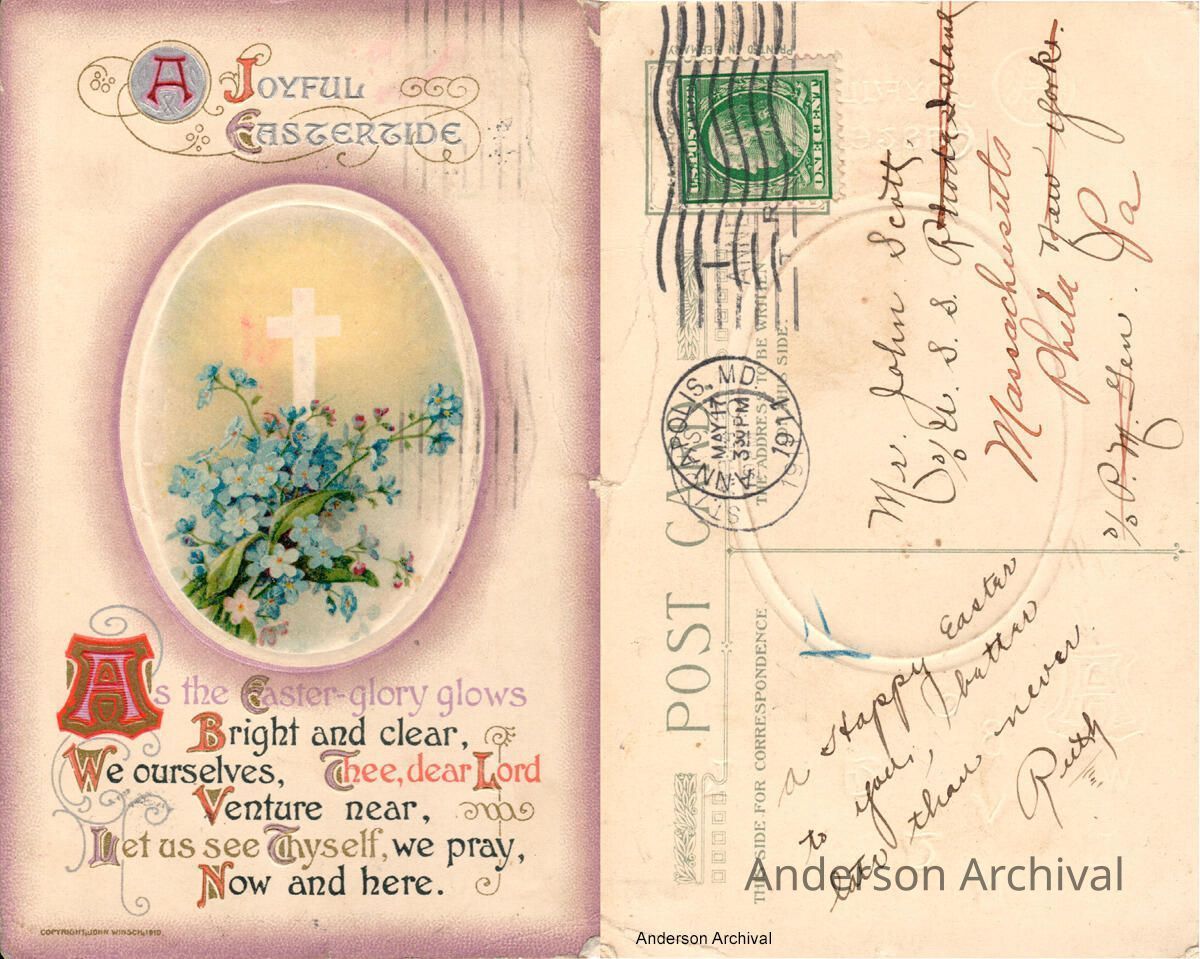 A JOYFUL
EASTERTIDE
As the Easter-glory glows
Bright and clear,
We ourselves, Thee, dear Lord
Venture near,
Let us see Thyself, we pray,
Now and here.
COPYRIGHT, JOHN WINSCH, 1910.
PRINTED IN GERMANY
U.S. POSTAGE
ONE CENT
ANNAPOLIS, MD.
MAY 17
3 30 P.M.
191
POST CARD
THE ADDRESS TO BE WRITTEN ON THIS SIDE.
Mr. John Scott,
c/o U. S. S. Rhode Island
Massachusetts
New York.
Phila Pa
c/o P. M. Gen.
THIS SIDE FOR CORRESPONDENCE
a Happy Easter
to you, better
late than never.
Ruth
Anderson Archival
Anderson Archival